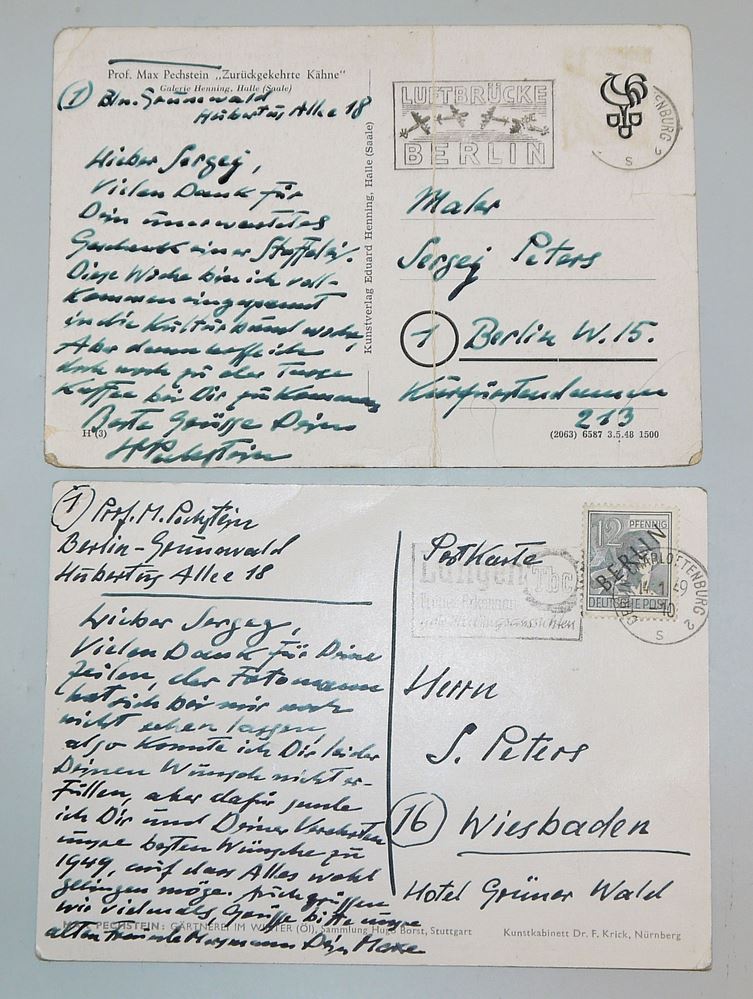 Prof. Max Pechstein „Zurückgekehrte Kähne“
Galerie Henning, Halle (Saale)
1 Bln. Grunewald
Hubertus Allee 18
Lieber Sergej,
Vielen Dank für
Dein unerwartetes
Geschenk einer Staffelei.
Diese Woche bin ich voll-
kommen eingespannt
in die Kulturbundwoche,
Aber dann hoffe ich
doch noch zu der Tasse
Kaffee bei Dir zu kommen
Beste Grüsse Dein
HPechstein
H (3)
Kunstverlag Eduard Henning, Halle (Saale)
LUFTBRÜCKE
BERLIN
ENBURG 2
s
Maler
Sergej Peters
1 Berlin W. 15.
Kurfürstendamm
213
(2063) 6587 3.5.48 1500
1 Prof. M. Pechstein
Berlin-Grunewald
Hubertus Allee 18
Lieber Sergej,
Vielen Dank für Deine
Zeilen, der Fotomann
hat sich bei mir noch
nicht sehen lassen,
also konnte ich Dir leider
Deinen Wunsch nicht er-
füllen, aber dafür sende
ich Dir und Deiner Verehrten
unsre besten Wünsche zu
1949, auf dass Alles wohl
gelingen möge. Auch grüssen
wir vielmals, Grüsse bitte unsre
alten Freunde Dein Maxe
PECHSTEIN: GÄRTNEREI IM WINTER (Öl), Sammlung Hugo Borst, Stuttgart
Postkarte
Lungen Tbc
12 PFENNIG
BERLIN
DEUTSCHE POST
CHARLOTTENBURG 2
14.1.49
10
s
Herrn
S. Peters
16 Wiesbaden
Hotel Grüner Wald
Kunstkabinett Dr. F. Krick, Nürnberg